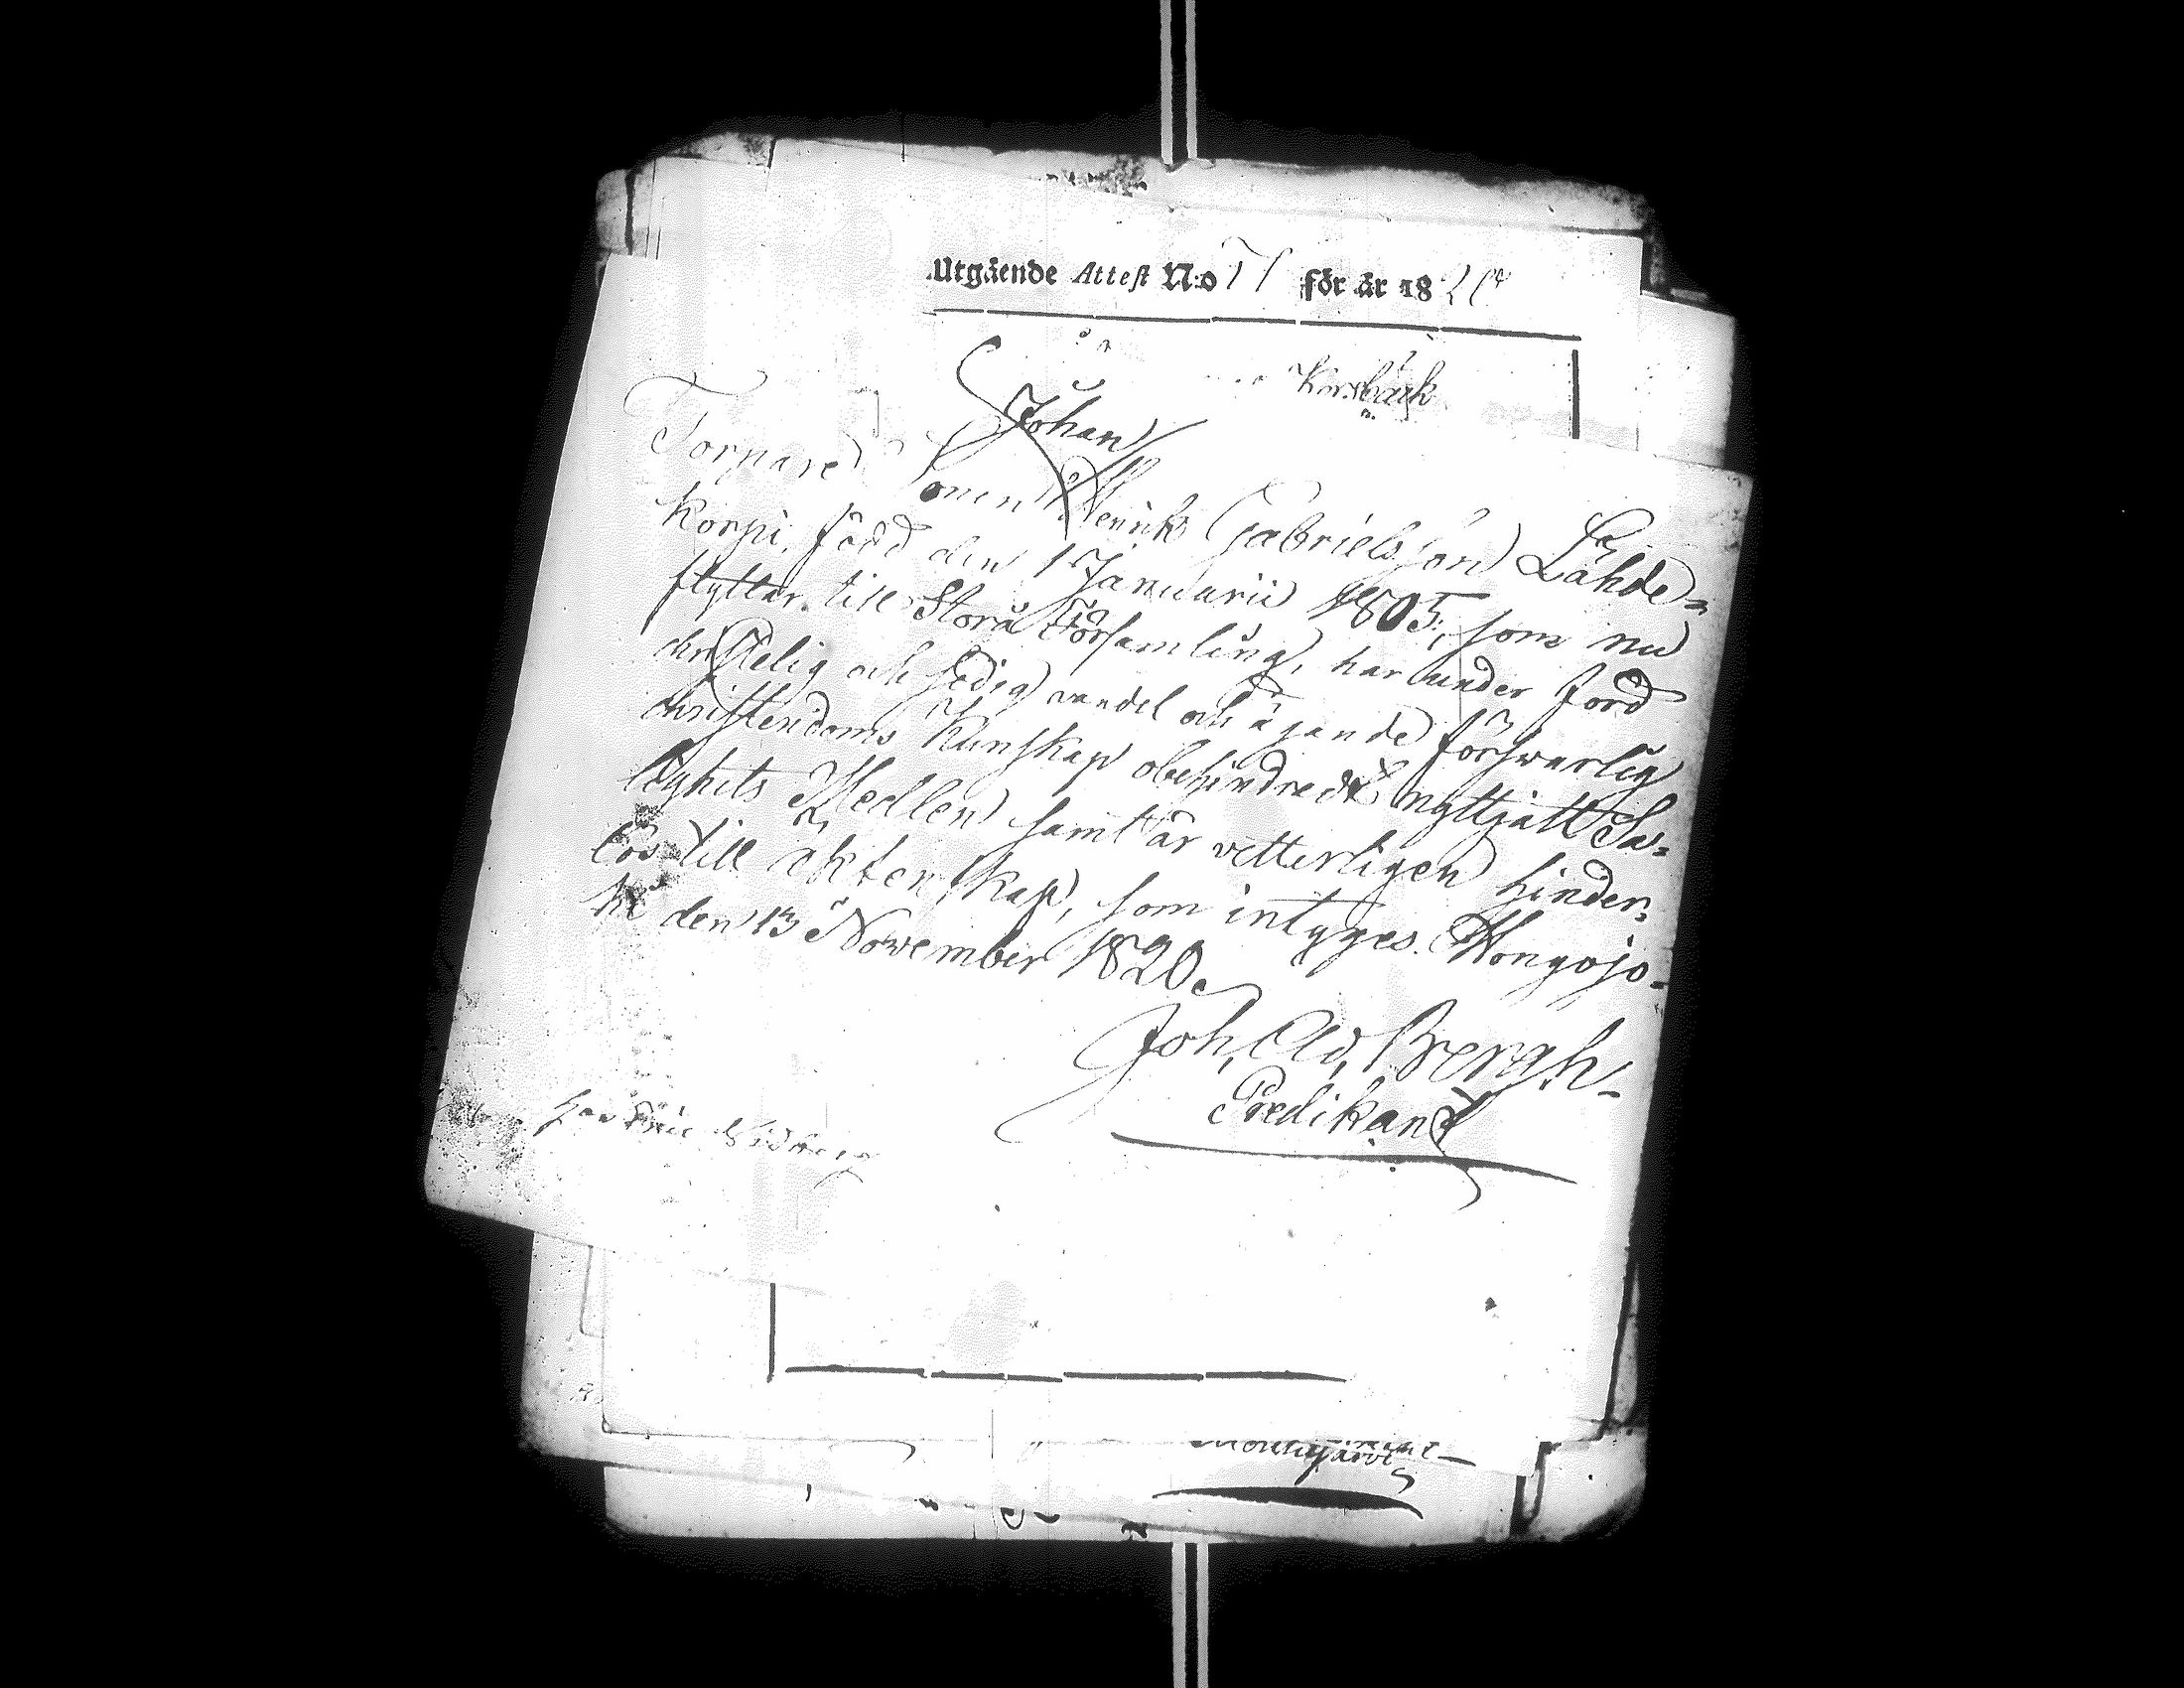 Utgående Attest N:o 71 för år 1820
Korsbäck
Johan
Torpare Sonen Henrik Gabrielsson Lähde=
korpi, född den 1 Januarii 1805, som nu
flyttar till Storå Församling, har under förd
christelig och sedig vandel och ägande försvarlig
christendoms Kunskap obehindradt nyttjatt Sa=
lighets Medlen samt är vetterligen hinder=
lös till äktenskap, som intyges. Hongojo=
ki den 13 November 1820.
Joh. Ad. Bergh.
Predikant